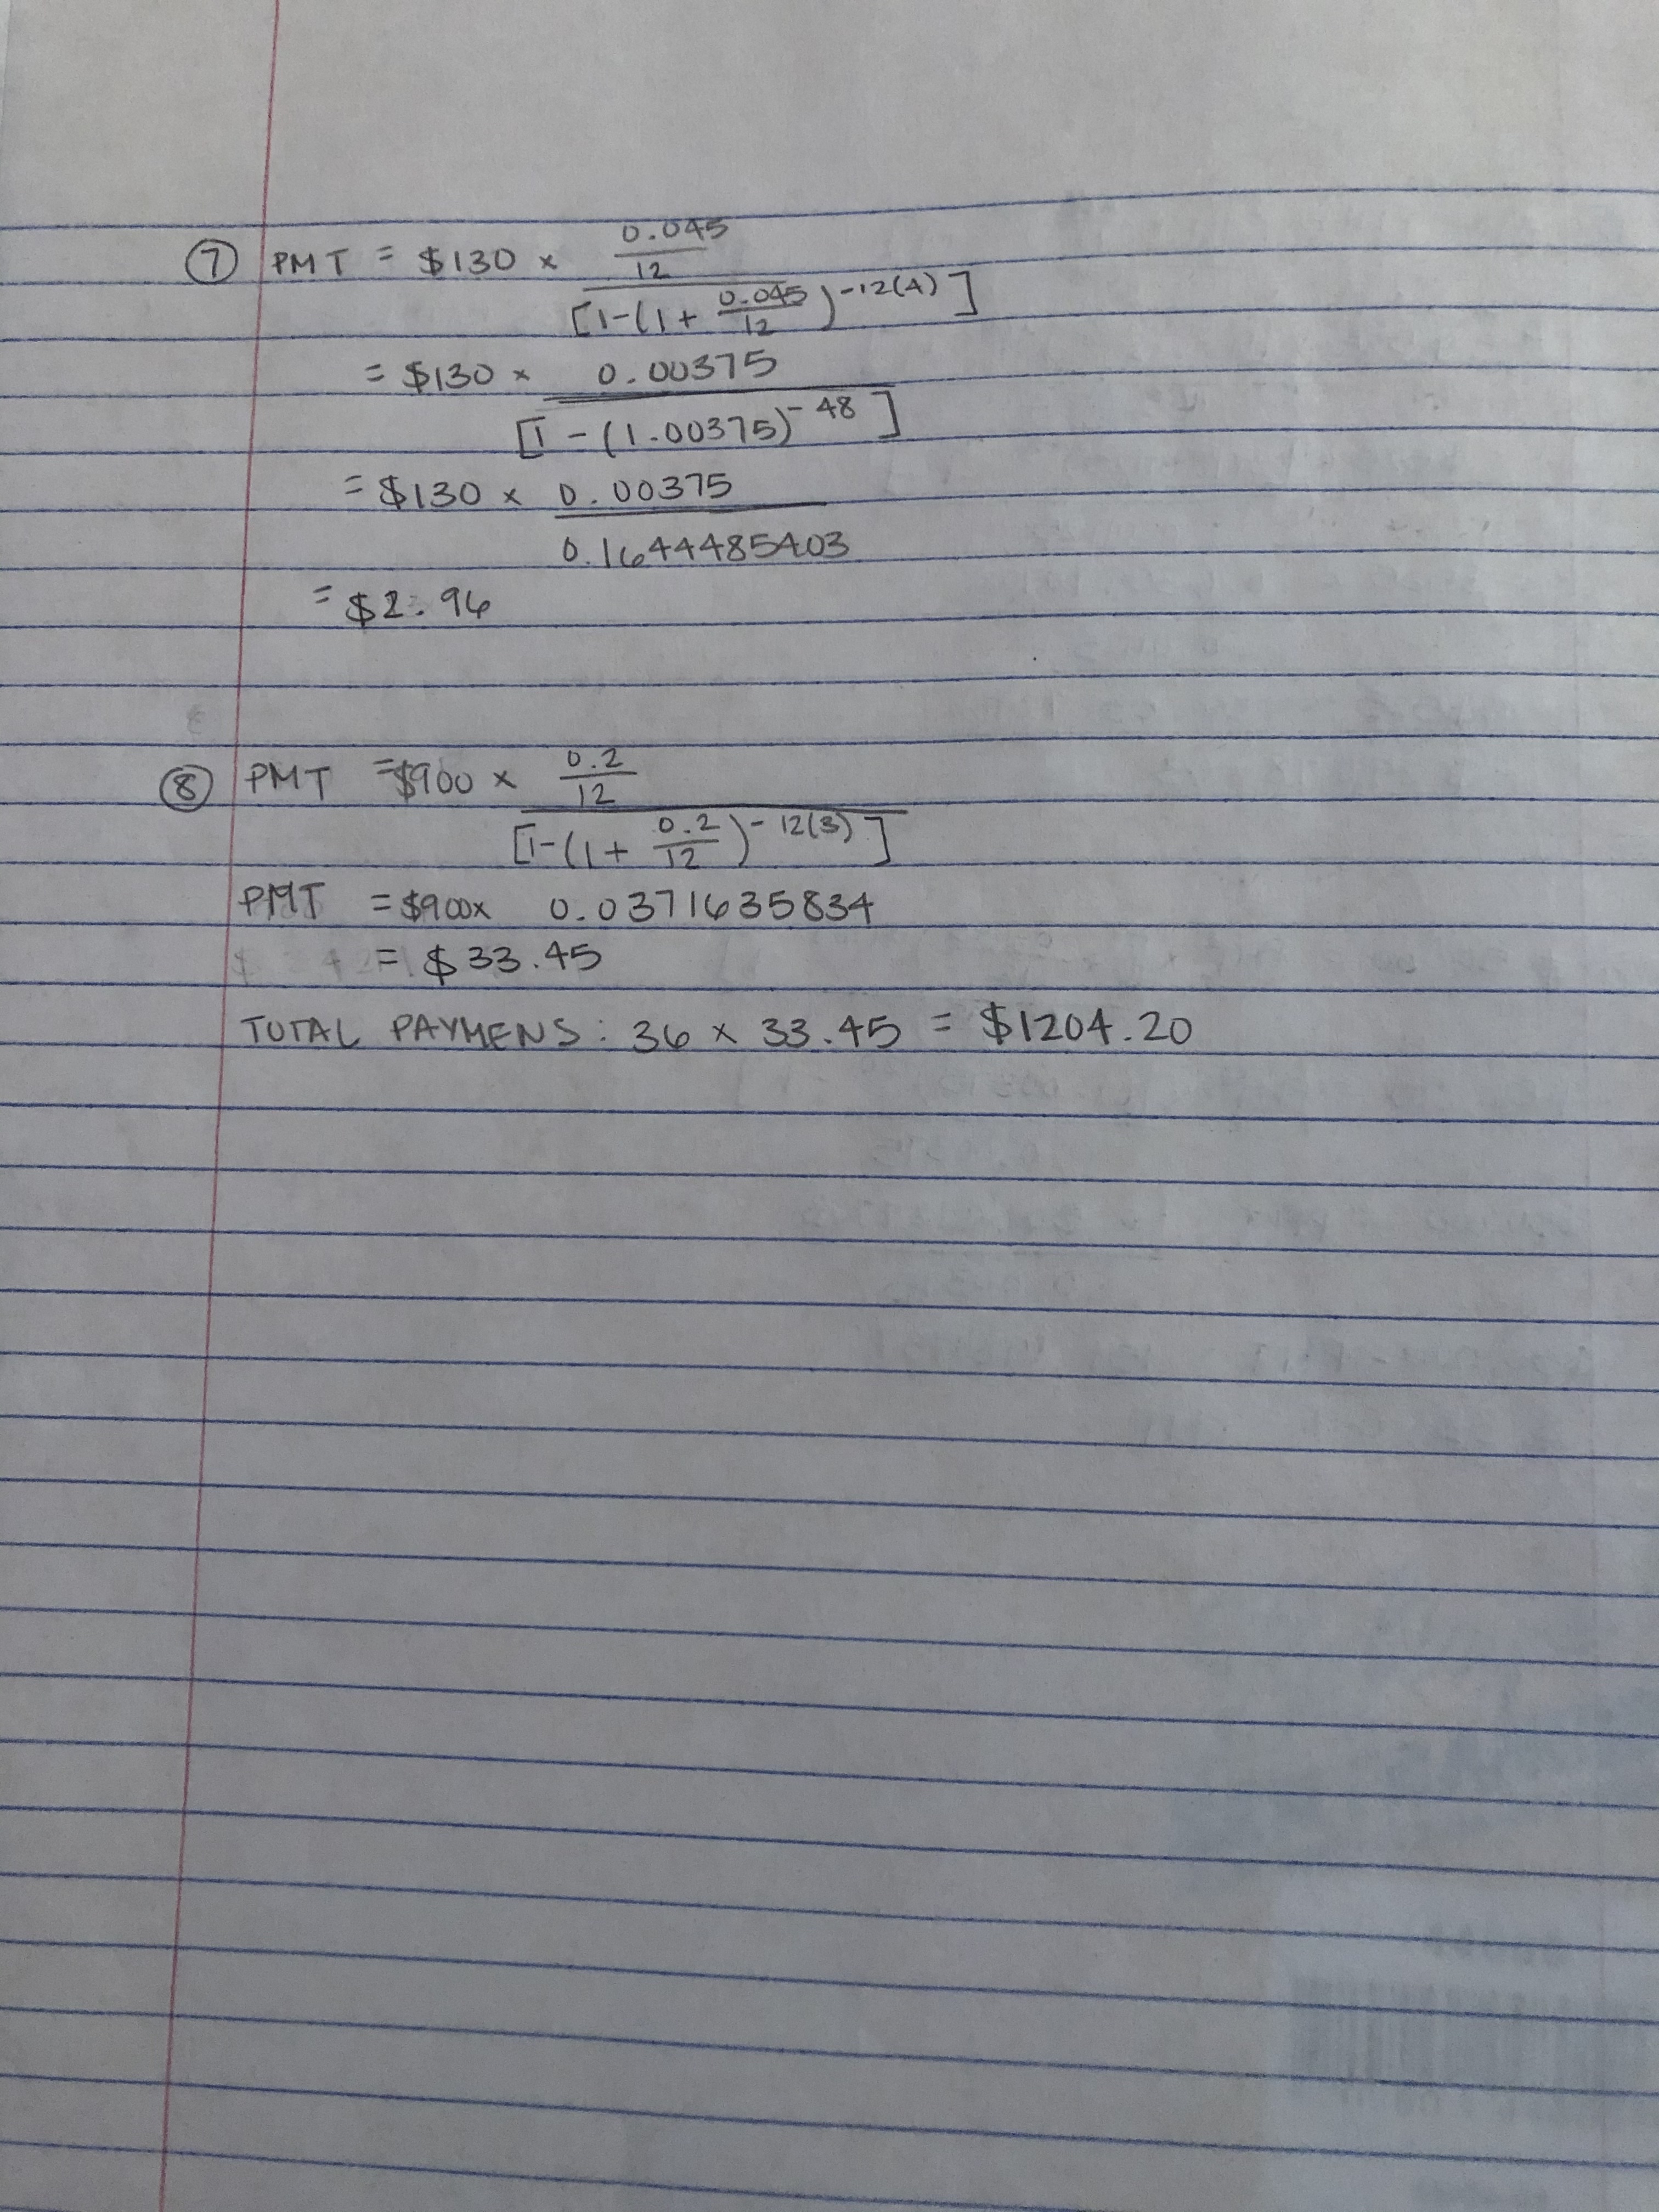 ⑦ PMT = $130 × 0.045
12
[1-(1+ 0.045
12 )-12(4)]
= $130 × 0.00375
[1 - (1.00375)-48]
= $130 × 0.00375
0.1644485403
= $2.96
⑧ PMT = $900 × 0.2
12
[1-(1+ 0.2
12 )-12(3)]
PMT = $900x 0.0371635834
= $33.45
TOTAL PAYMENS: 36 × 33.45 = $1204.20